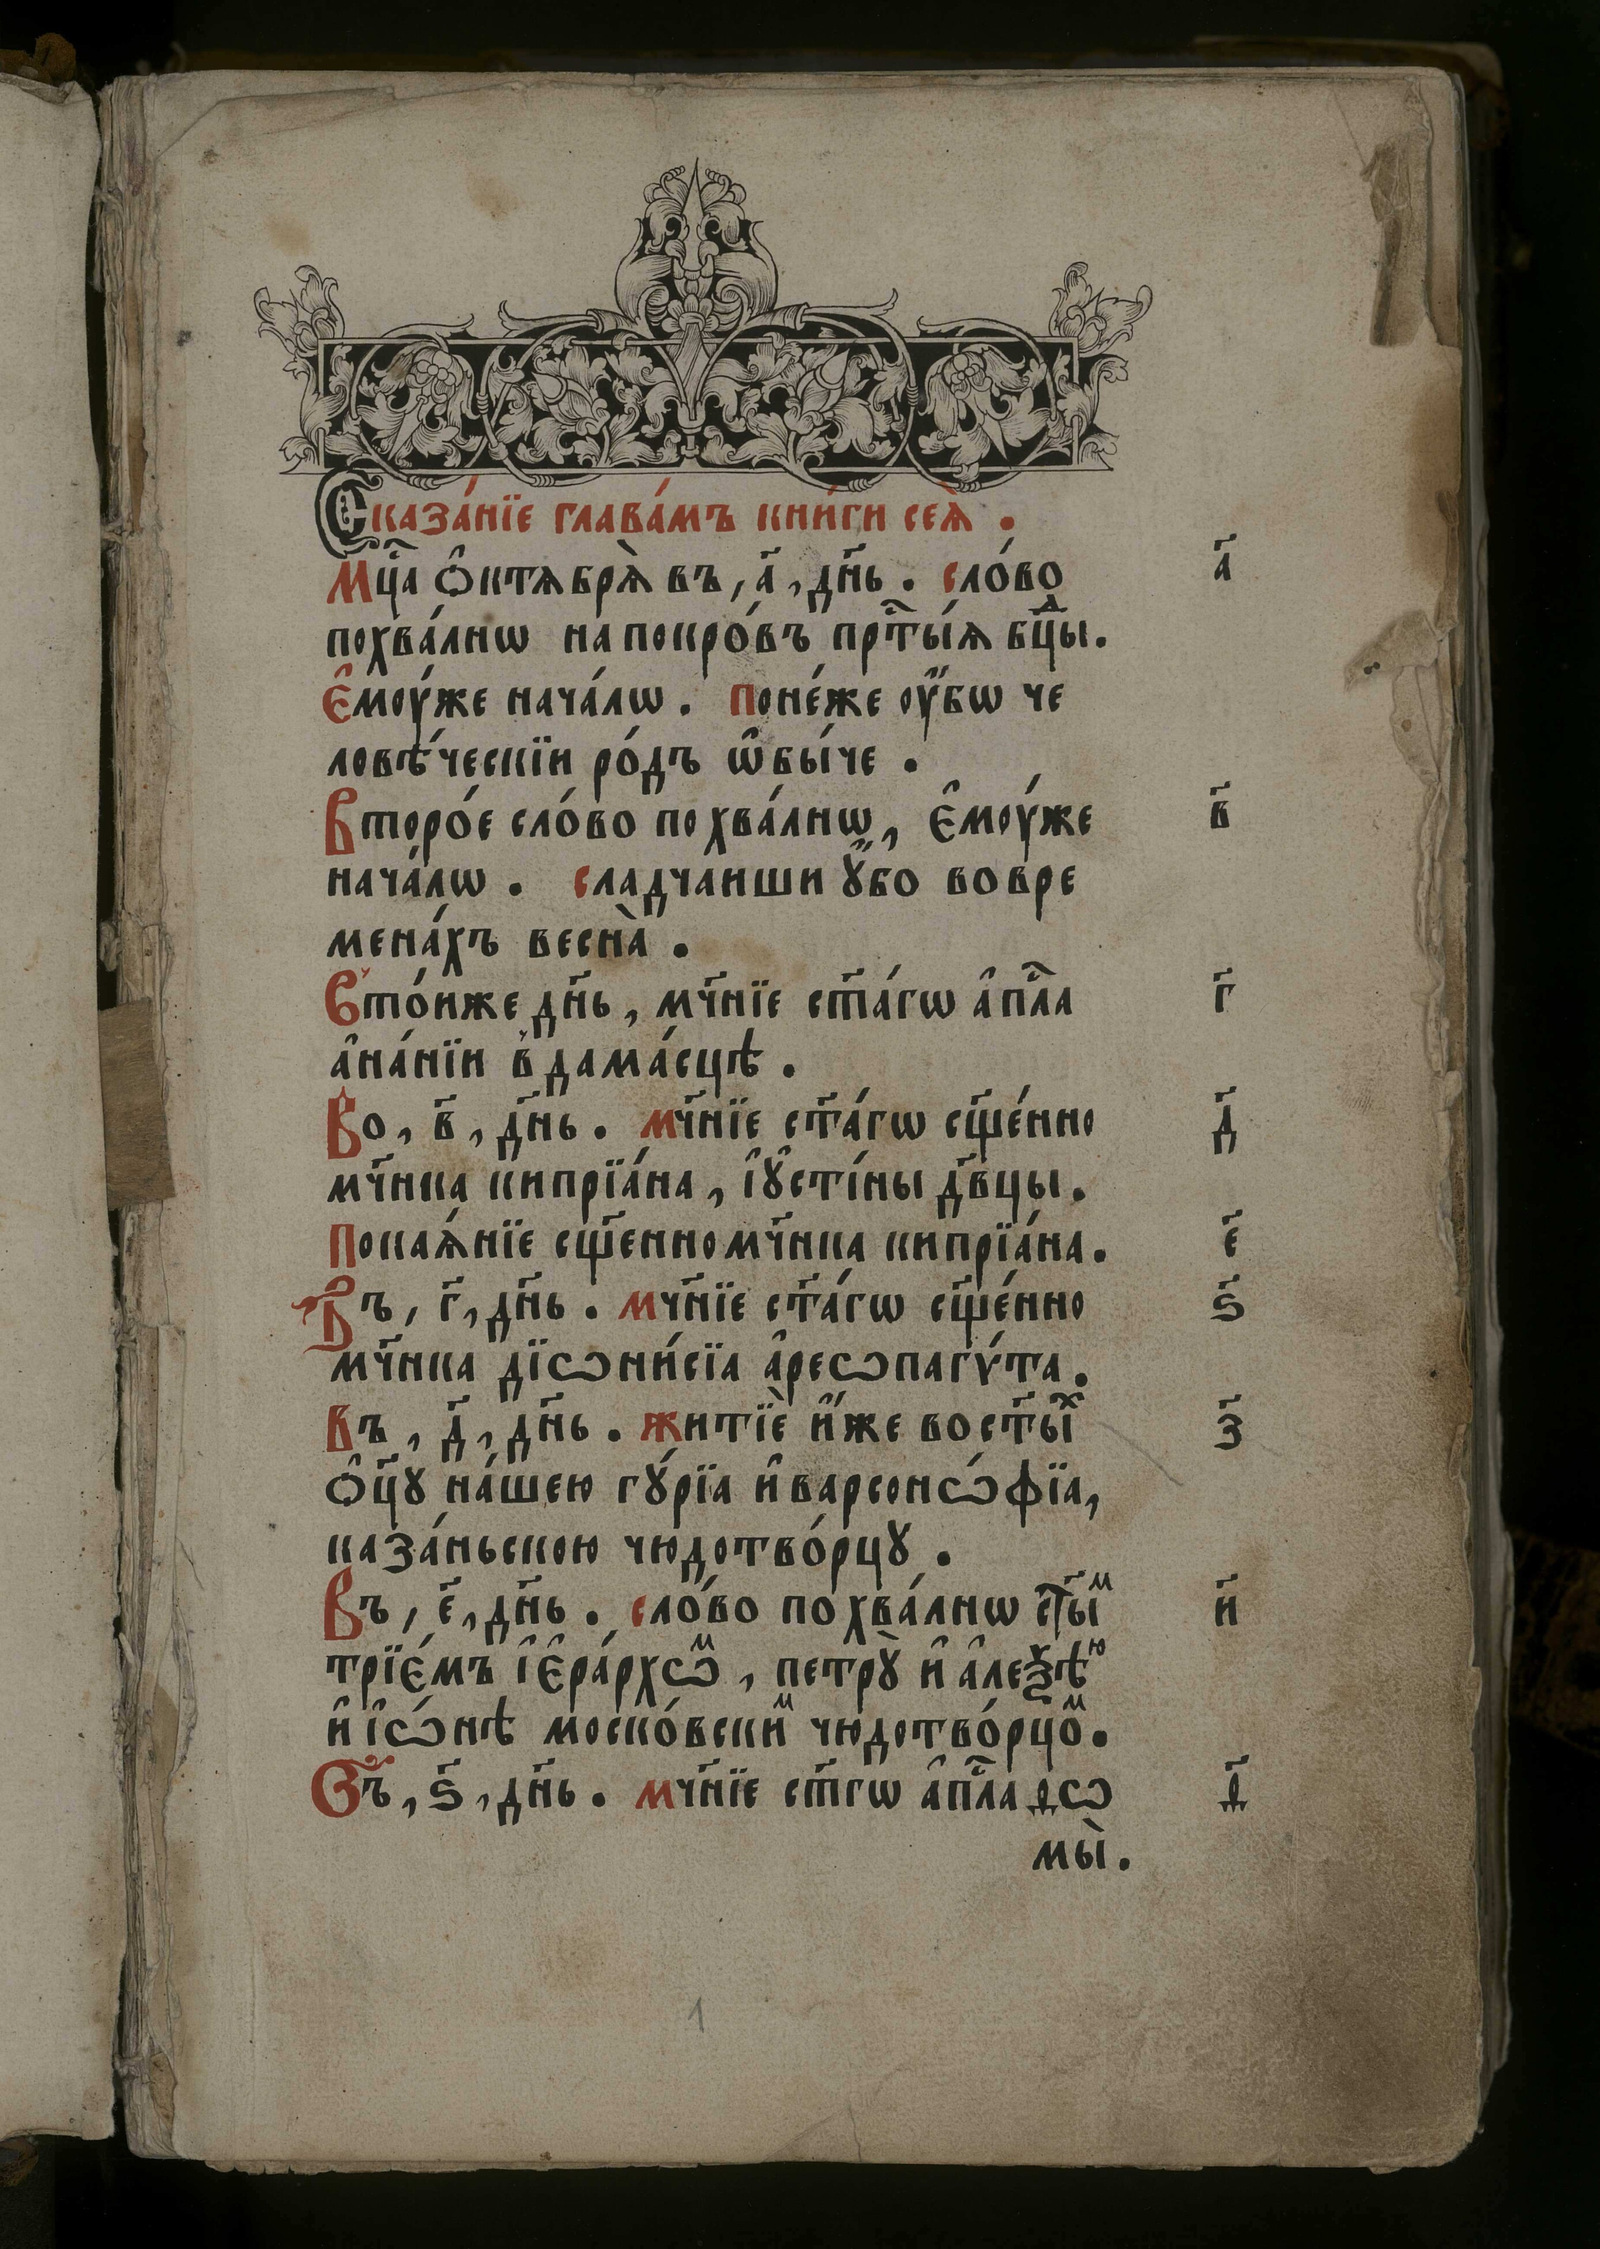 Сказа́нїе глава́мъ кни́ги сеѧ̀ .
Мц҃а ѻ҆ктѧбрѧ̀ въ , а҃ , дн҃ь . сло́во а҃
похва́лнѡ на покро́въ прⷭ҇ты́ѧ бцⷣы .
Є҆моу́же нача́лѡ . поне́же оу҆́бѡ че
ловѣ́ческїи ро́дъ ѡ҆бы́че .
Второ́е сло́во похва́лнѡ , є҆моу́же в҃
нача́лѡ . сладчаиши ꙋ҆́бо вовре
мена́хъ весна̀ .
Вто́иже дн҃ь , мч҃нїе ст҃а́гѡ а҆пⷭ҇ла г҃
а҆на́нїи в дама́сцѣ .
Во , в҃ , дн҃ь . мч҃нїе ст҃а́гѡ сщ҃е́нно д҃
мч҃нка кипрїа́на , і҆ꙋ҆сті́ны дв҃цы .
Покаѧ́нїе сщ҃енномч҃нка кипрїа́на . є҃
Въ , г҃ , дн҃ь . мч҃нїе ст҃а́гѡ сщ҃е́нно ѕ҃
мч҃нка дїѡни́сїа а҆реѡпагѵ́та .
Въ , д҃ , дн҃ь . житїѐ и҆́же вост҃ыⷯ з҃
ѻ҆ц҃ꙋ на́шею гꙋ́рїа и҆ варсонѡ́фїа ,
каза́ньскою чюдотво́рцꙋ .
Въ , є҃ , дн҃ь . сло́во похва́лнѡ ст҃ыⷨ и҃
трїє́мъ і҆є҆ра́рхѡⷨ , петрꙋ̀ и҆ а҆леѯѣⷻ
и҆ і҆ѡ́нѣ моско́вскиⷨ чюдотво́рцоⷨ .
Въ , ѕ҃ , дн҃ь . мч҃нїе ст҃гѡ а҆пⷭ҇ла ѳѡ ѳ҃
мы̀ .
1